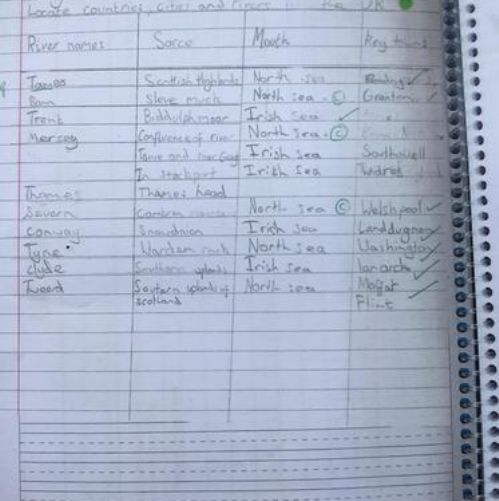 Locate countries, cities and rivers in the UK
River names Sorce Mouth Key towns
Tames Scottish Highlands North sea
Bann Sleve much North sea. © Grantam
Trent Biddulph moor Irish sea
Mersey Confluence of river North sea. ©
Tame and river Goyt Irish Sea Southwell
In stockport Irish Sea Widnes
Thames Thames head
Severn North sea © Welshpool
conway Snowdnion Irish Sea Landdugnay
Tyne Warden rock North sea Washington
clyde Southern uplands Irish Sea lanarck
Tweed Soutern uplands of North sea Moffat
scotland Flint